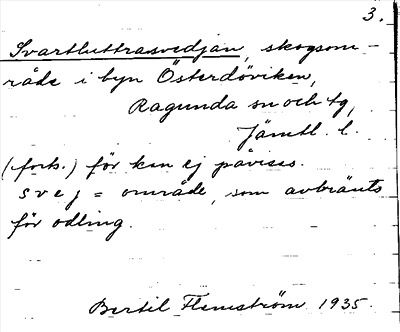 3.
Svartbuttrasvedjan, skogsom-
råde i byn Österdöviken,
Ragunda sn och tg,
Jämtl. l.
(forts.) för kan ej påvises.
svej = område, som avbränts
för odling.
Bertil Flemström 1935.